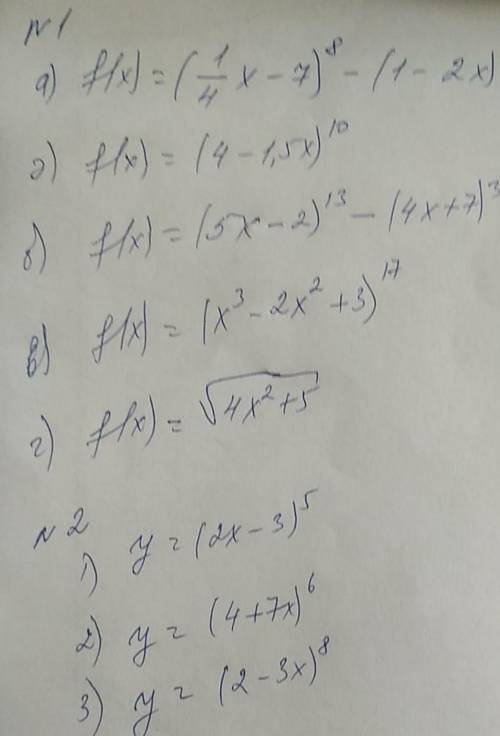 №1
а) f(x) = (1/4 x − 7)^8 − (1 − 2x)
д) f(x) = (4 − 1,5x)^10
б) f(x) = (5x − 2)^13 − (4x + 7)^3
в) f(x) = (x^3 − 2x^2 + 3)^17
г) f(x) = √(4x^2 + 5)
№2
1) y = (2x − 3)^5
2) y = (4 + 7x)^6
3) y = (2 − 3x)^8